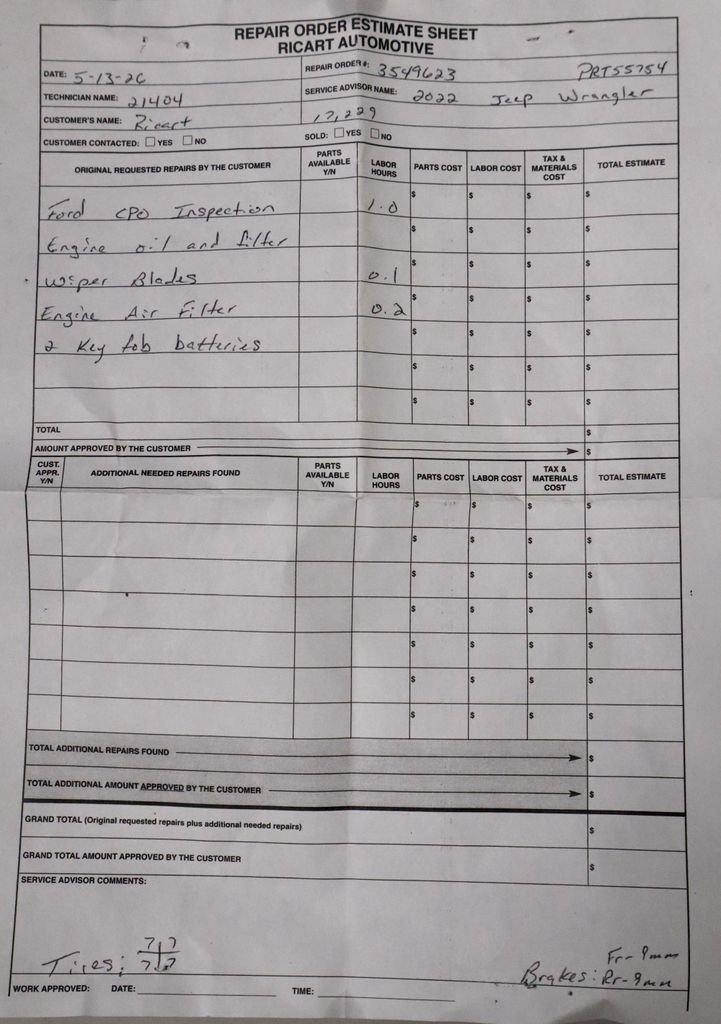 REPAIR ORDER ESTIMATE SHEET
RICART AUTOMOTIVE
DATE: 5-13-26
REPAIR ORDER #: 3549623 PRT55754
TECHNICIAN NAME: 21404
SERVICE ADVISOR NAME: 2022 Jeep Wrangler
CUSTOMER'S NAME: Ricart
17,229
CUSTOMER CONTACTED: ☐ YES ☐ NO
SOLD: ☐ YES ☐ NO
ORIGINAL REQUESTED REPAIRS BY THE CUSTOMER
PARTS AVAILABLE Y/N
LABOR HOURS
PARTS COST
LABOR COST
TAX & MATERIALS COST
TOTAL ESTIMATE
Ford CPO Inspection 1.0 $ $ $ $
Engine oil and filter $ $ $ $
Wiper Blades 0.1 $ $ $ $
Engine Air Filter 0.2 $ $ $ $
2 Key fob batteries $ $ $ $
$ $ $ $
$ $ $ $
TOTAL $
AMOUNT APPROVED BY THE CUSTOMER $
CUST. APPR. Y/N
ADDITIONAL NEEDED REPAIRS FOUND
PARTS AVAILABLE Y/N
LABOR HOURS
PARTS COST
LABOR COST
TAX & MATERIALS COST
TOTAL ESTIMATE
$ $ $ $
$ $ $ $
$ $ $ $
$ $ $ $
$ $ $ $
$ $ $ $
$ $ $ $
TOTAL ADDITIONAL REPAIRS FOUND $
TOTAL ADDITIONAL AMOUNT APPROVED BY THE CUSTOMER $
GRAND TOTAL (Original requested repairs plus additional needed repairs) $
GRAND TOTAL AMOUNT APPROVED BY THE CUSTOMER $
SERVICE ADVISOR COMMENTS:
7 7
Tires: 7 7
Fr- 9mm
Brakes: Rr- 9mm
WORK APPROVED: DATE: TIME: